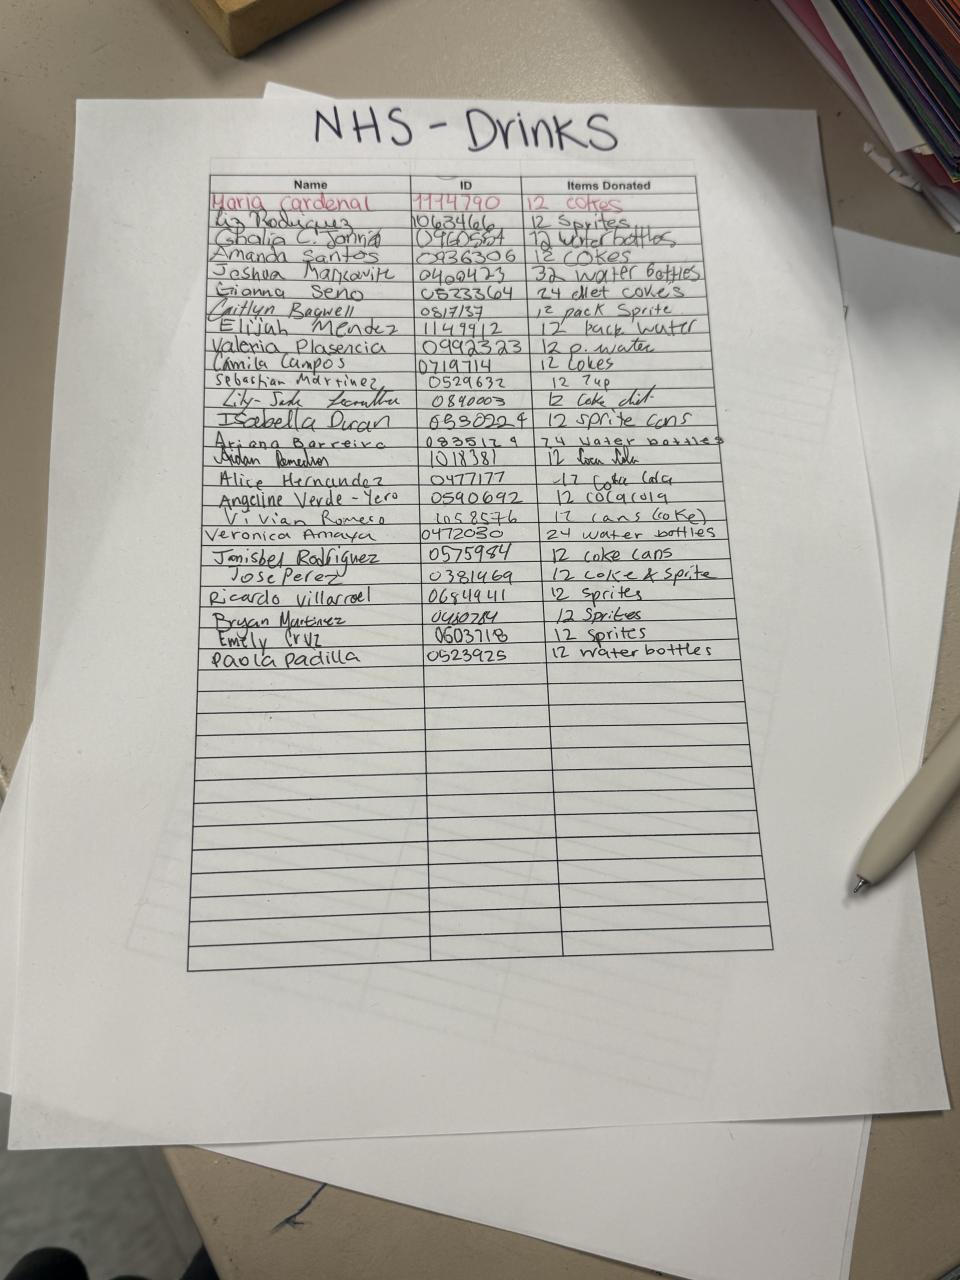 NHS - Drinks
Name ID Items Donated
Maria Cardenal 1114790 12 cokes
Liz Rodriguez 1063466 12 Sprites
Ghalia C. 12 water bottles
Amanda Santos 0936306 12 COKES
Joshua 0400423 32 water bottles
Gianna Seno 0523364 24 diet cokes
Caitlyn Bagwell 0817137 12 pack Sprite
Elijah Mendez 1149912 12 pack water
Valeria Plasencia 0992323 12 p. water
Camila Campos 0719714 12 Cokes
Sebastian Martinez 0529632 12 7up
Lily-Jade 0840003 12 Coke diet
Isabella Duran 12 sprite cans
Ariana Barreiro 0835129 24 water bottles
Aidan 1018381 12 Coca Cola
Alice Hernandez 0477177 12 Coka Cola
Angeline Verde-Yero 0590692 12 cocacola
Vivian Romero 1058576 12 cans (coke)
Veronica Amaya 0472030 24 water bottles
Janisbel Rodriguez 0575984 12 coke cans
Jose Perez 0381469 12 coke & sprite
Ricardo Villarroel 0684941 12 Sprites
Bryan Martinez 12 Sprites
Emely Cruz 0603218 12 sprites
Paola Padilla 0523925 12 water bottles